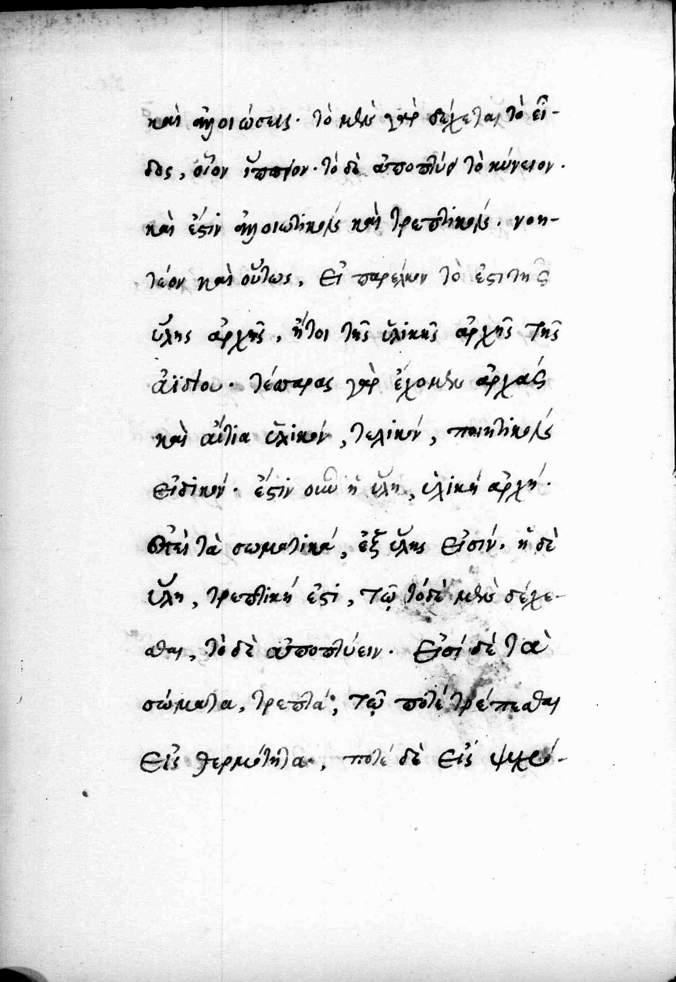 καὶ ἀλλοιώσεις· τὸ μὲν γὰρ δέχεται τὸ εἶ-
δος, οἷον ἵππειον· τὸ δὲ ἀποπτύει τὸ κύνειον·
καὶ ἔστιν ἀλλοιωτικὸν καὶ τρεπτικόν. νοη-
τέον καὶ οὕτως, εἰ παρέλκον τὸ ἐστι τῆς
ὕλης ἀρχῆς, ἤτοι τῆς ὑλικῆς ἀρχῆς τῆς
ἀϊδίου. τέσσαρας γὰρ ἔχομεν ἀρχὰς
καὶ αἴτια ὑλικόν, τελικόν, ποιητικὸν
εἰδικόν. ἔστιν οὖν ἡ ὕλη, ὑλικὴ ἀρχή·
ἐπεὶ τὰ σωματικά, ἐξ ὕλης εἰσίν. ἡ δὲ
ὕλη, τρεπτική ἐστι, τῷ τόδε μὲν δέχε-
σθαι, τὸ δὲ ἀποπτύειν. εἰσὶ δὲ τὰ
σώματα, τρεπτά, τῷ ποτὲ τρέπεσθαι
εἰς θερμότητα, ποτὲ δὲ εἰς ψυχρό-